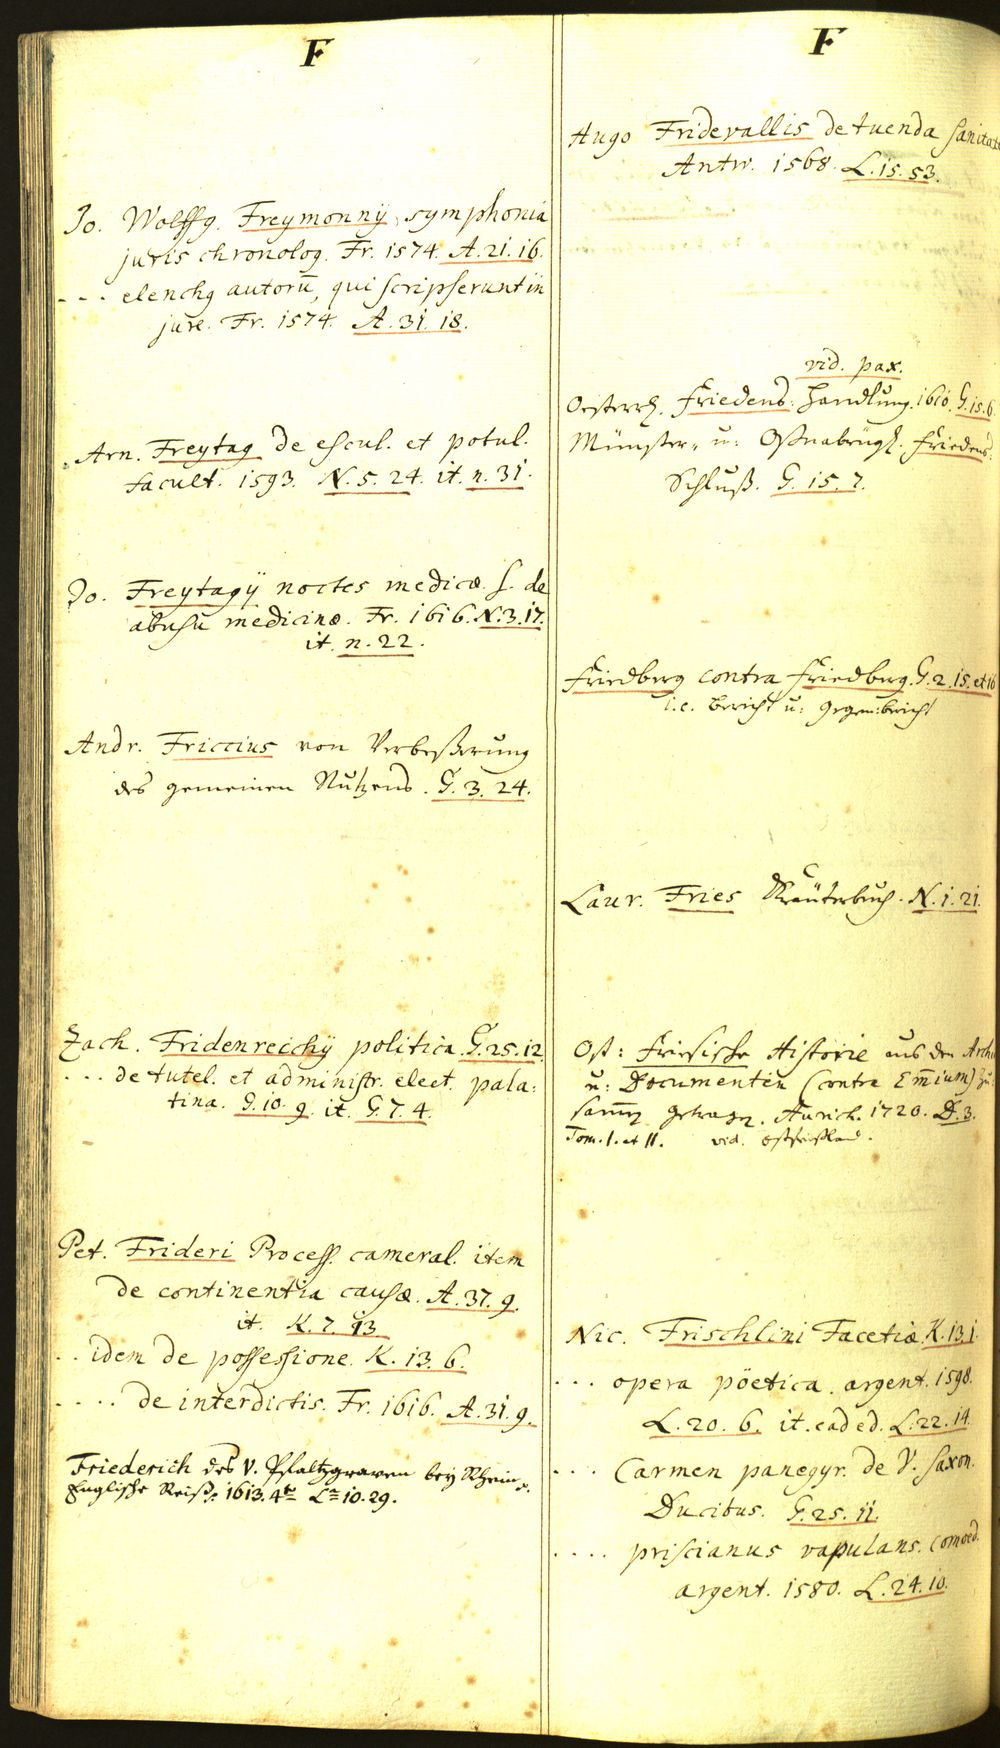 F
Jo. Wolffg. Freymonnij symphonia
juris chronolog. Fr. 1574. A. 21. 16.
- - - elenchg autorū, qui scripserunt in
jure. Fr. 1574. A. 31. 18.
Arn. Freytag de escul. et potul.
facult. 1593. N. 5. 24. it. n. 31.
Jo. Freytagij noctes medicæ. s. de
abusu medicinæ. Fr. 1616. N. 3. 17.
it. n. 22.
Andr. Friccius von Verbeßerung
des gemeinen Nutzens. G. 3. 24.
Zach. Fridenreichij politica. G. 25. 12
... de tutel. et administr. elect. pala:
tina. G. 10. 9. it. G. 7. 4.
Pet. Frideri Process. cameral. item
de continentia causæ. A. 37. 9.
it. K. 7. 13
.. idem de possessione. K. 13. 6.
.... de interdictis. Fr. 1616. A. 31. 9.
Friederich des V. Pfaltzgraven bey Rhein
Englische Reiß. 1613. 4to L. 10. 29.
F
Hugo Fridevallis de tuenda sanitat
Antw. 1568. L. 15. 53.
vid. pax.
Oesterr. Friedens: Handlung. 1610. G. 15. 6
Münster- u: Oßnabrügk. Friedens:
Schluß. G. 15. 7.
Friedberg contra Friedberg. G. 2. 15. et 16
i. e. Bericht u: gegenbericht
Laur. Fries Kräuterbuch. N. 1. 21.
Ost: Friesische Historie aus den Archi
u: Documenten (contra Em̄ium) zu:
sam̄ getragen. Aurich. 1720. D. 3.
Tom. I. et II. vid. Ostfrießland.
Nic. Frischlini Facetiæ. K. 13. 1.
... opera pöetica. argent. 1598.
L. 20. 6. it. ead ed. L. 22. 14.
... Carmen panegyr. de V. saxon.
Ducibus. G. 25. 11.
.... priscianus vapulans. comoed.
argent. 1580. L. 24. 10.